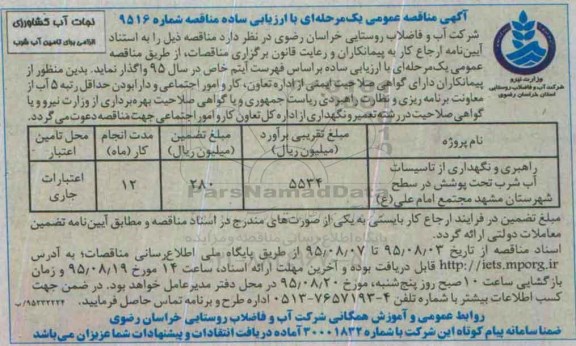 آگهی مناقصه عمومی یک‌مرحله‌ای با ارزیابی ساده مناقصه شماره ۹۵۱۶
نجات آب کشاورزی
الزامی برای تامین آب شرب
وزارت نیرو
شرکت آب و فاضلاب روستایی
استان خراسان رضوی
شرکت آب و فاضلاب روستایی خراسان رضوی در نظر دارد مناقصه ذیل را به استناد
آیین‌نامه ارجاع کار به پیمانکاران و رعایت قانون برگزاری مناقصات، از طریق مناقصه
عمومی یک‌مرحله‌ای با ارزیابی ساده براساس فهرست آیتم خاص در سال ۹۵ واگذار نماید. بدین منظور از
پیمانکاران دارای گواهی صلاحیت ایمنی از اداره تعاون، کار و امور اجتماعی و دارا بودن حداقل رتبه ۵ آب از
معاونت برنامه ریزی و نظارت راهبردی ریاست جمهوری و یا گواهی صلاحیت بهره‌برداری از وزارت نیرو و یا
گواهی صلاحیت در رشته تعمیر و نگهداری از اداره کل تعاون کار و امور اجتماعی جهت مناقصه دعوت می گردد.
نام پروژه | مبلغ تقریبی برآورد (میلیون ریال) | مبلغ تضمین (میلیون ریال) | مدت انجام کار (ماه) | محل تامین اعتبار
راهبری و نگهداری از تاسیسات آب شرب تحت پوشش در سطح شهرستان مشهد مجتمع امام علی (ع) | ۵۵۳۴ | ۲۸۰ | ۱۲ | اعتبارات جاری
ParsNamadData
مبلغ تضمین در فرایند ارجاع کار بایستی به یکی از صورت‌های مندرج در اسناد مناقصه و مطابق آیین‌نامه تضمین
معاملات دولتی ارائه گردد.
اسناد مناقصه از تاریخ ۹۵/۰۸/۰۳ تا ۹۵/۰۸/۰۷ از طریق پایگاه ملی اطلاع‌رسانی مناقصات؛ به آدرس
http://iets.mporg.ir قابل دریافت بوده و آخرین مهلت ارائه اسناد، ساعت ۱۴ مورخ ۹۵/۰۸/۱۹ و زمان
بازگشایی ساعت ۱۰ صبح روز پنج‌شنبه، مورخ ۹۵/۰۸/۲۰ در محل دفتر مدیرعامل خواهد بود. در ضمن جهت
کسب اطلاعات بیشتر با شماره تلفن ۴-۰۵۱۳۷۶۵۷۱۹۳ اداره طرح و برنامه تماس حاصل فرمایید.
روابط عمومی و آموزش همگانی شرکت آب و فاضلاب روستایی خراسان رضوی
ضمنا سامانه پیام کوتاه این شرکت با شماره ۳۰۰۰۱۸۳۴ آماده دریافت انتقادات و پیشنهادات شما عزیزان می‌باشد